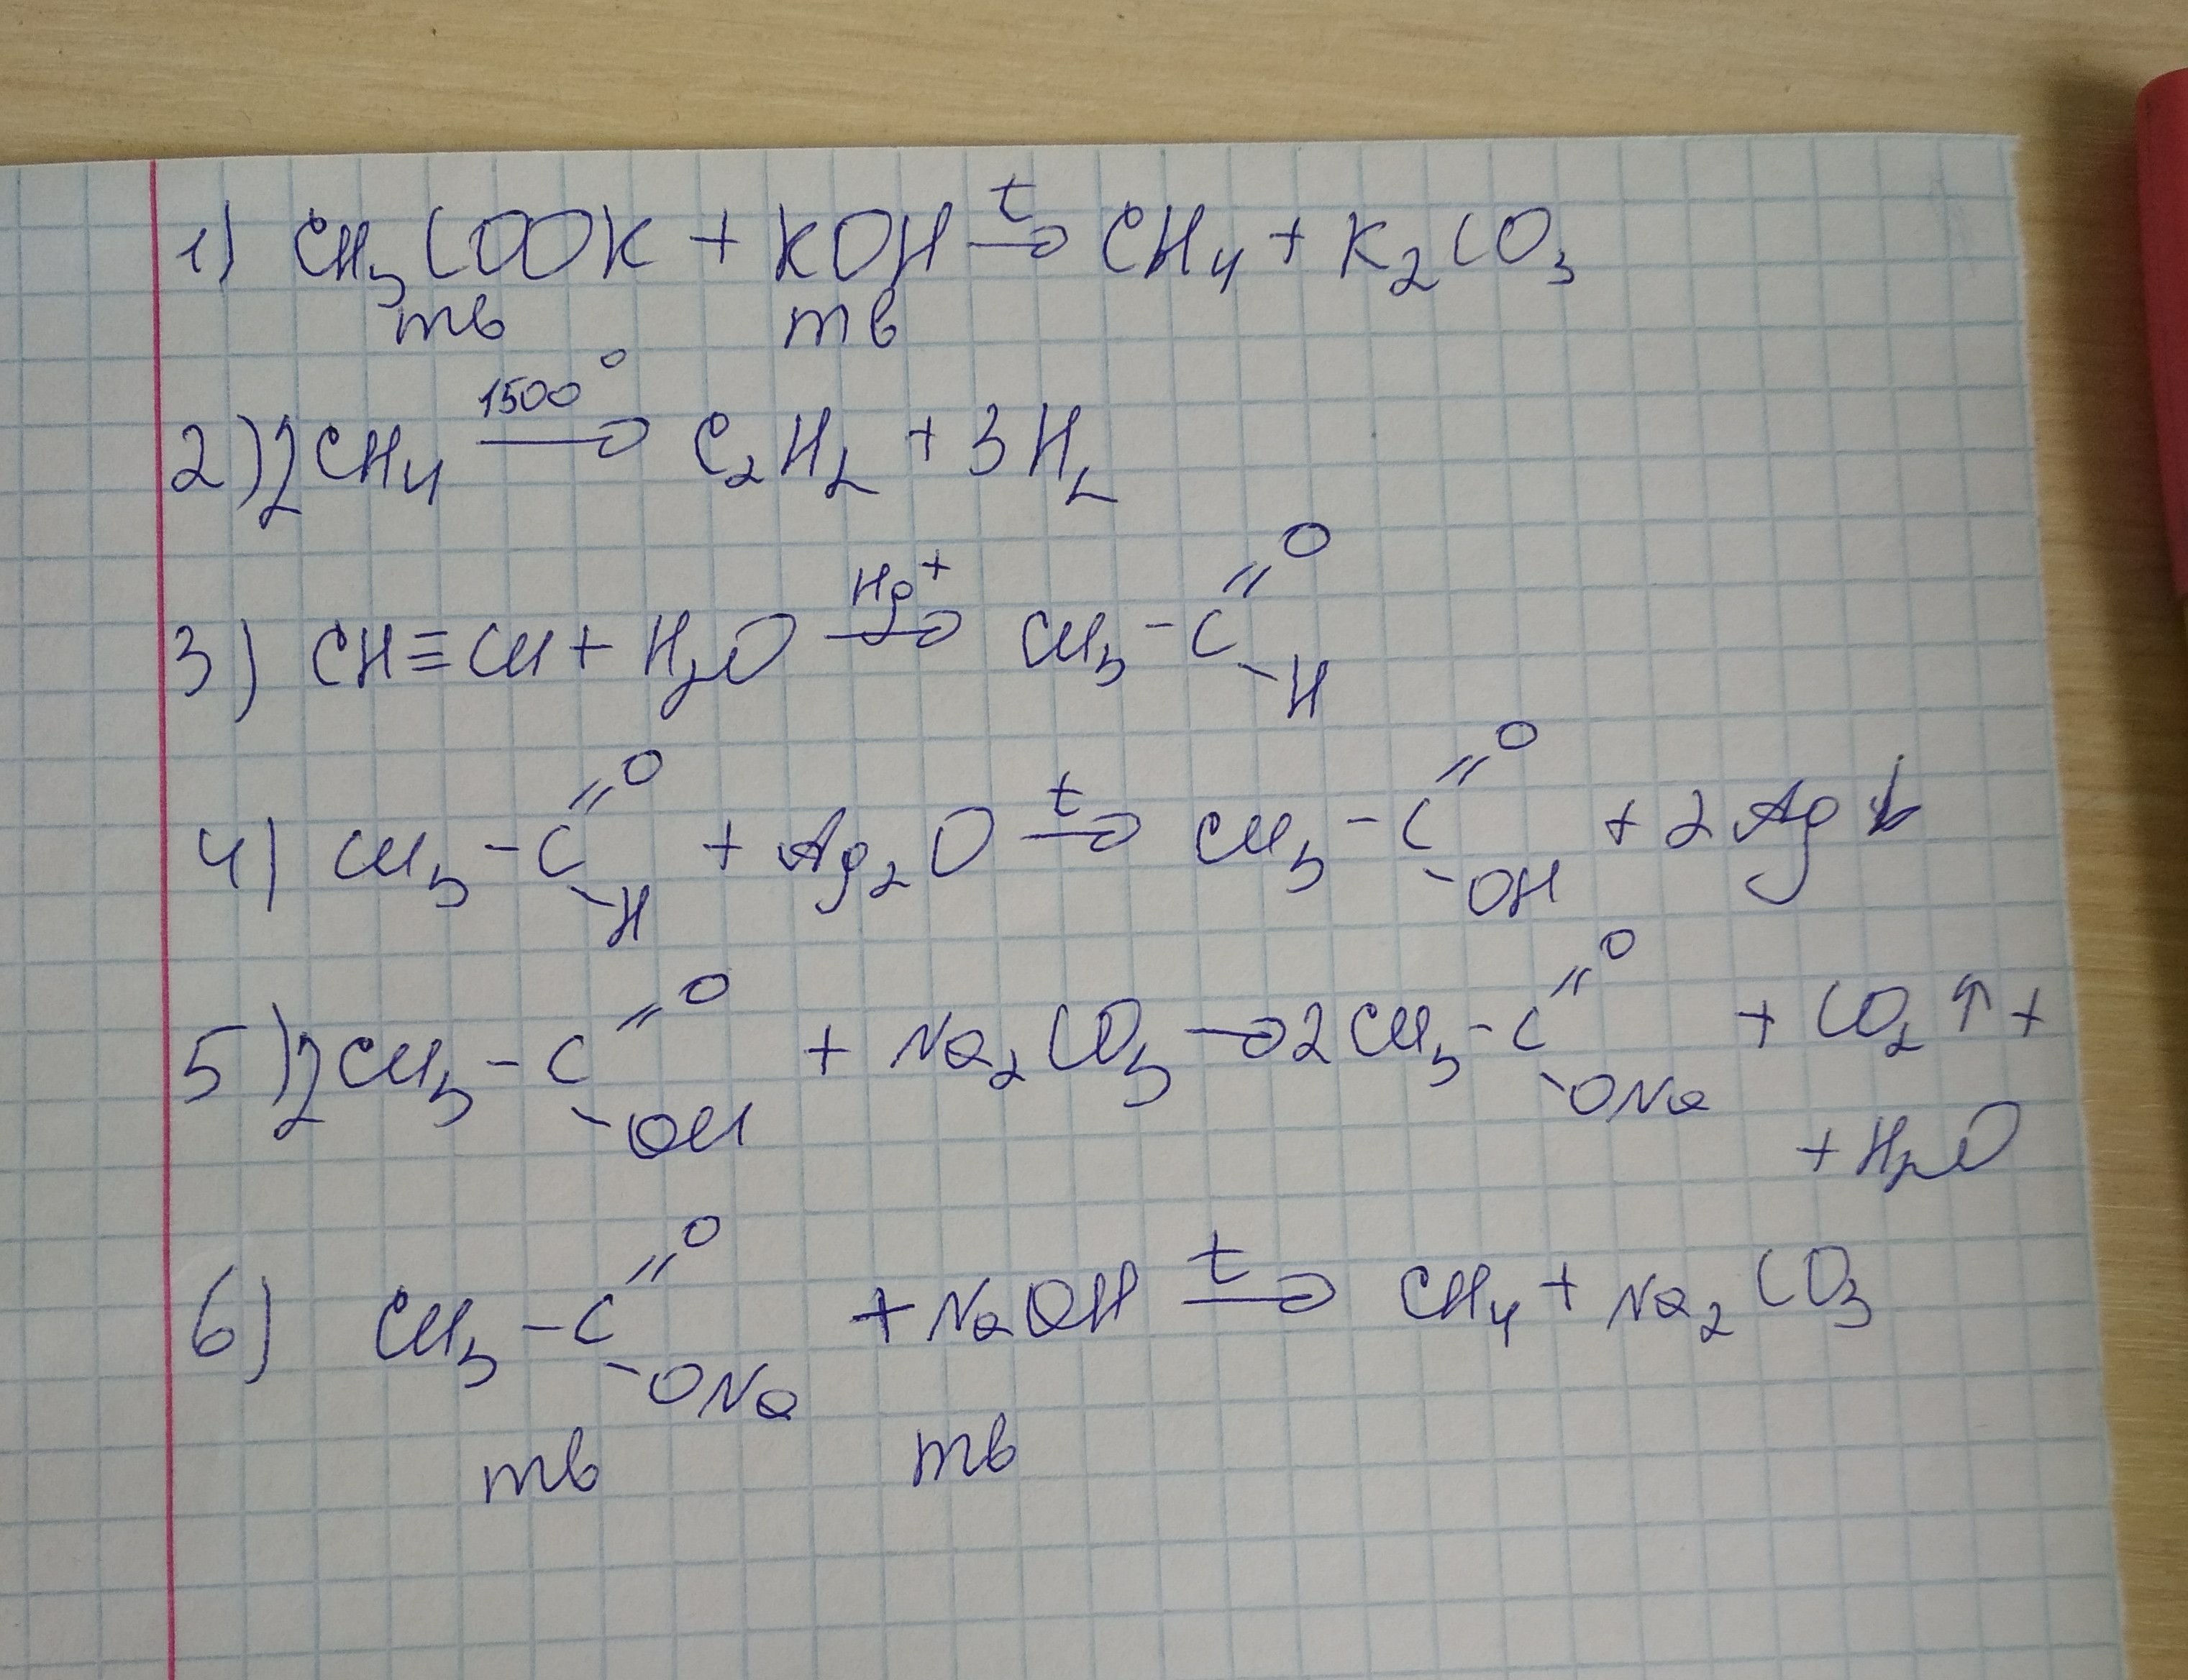 1) CH₃COOK + KOH →(t) CH₄ + K₂CO₃
тв тв
2) 2CH₄ →(1500°) C₂H₂ + 3H₂
3) CH≡CH + H₂O →(Hg⁺) CH₃-C(=O)-H
4) CH₃-C(=O)-H + Ag₂O →(t) CH₃-C(=O)-OH + 2Ag↓
5) 2CH₃-C(=O)-OH + Na₂CO₃ → 2CH₃-C(=O)-ONa + CO₂↑ +
+ H₂O
6) CH₃-C(=O)-ONa + NaOH →(t) CH₄ + Na₂CO₃
тв тв